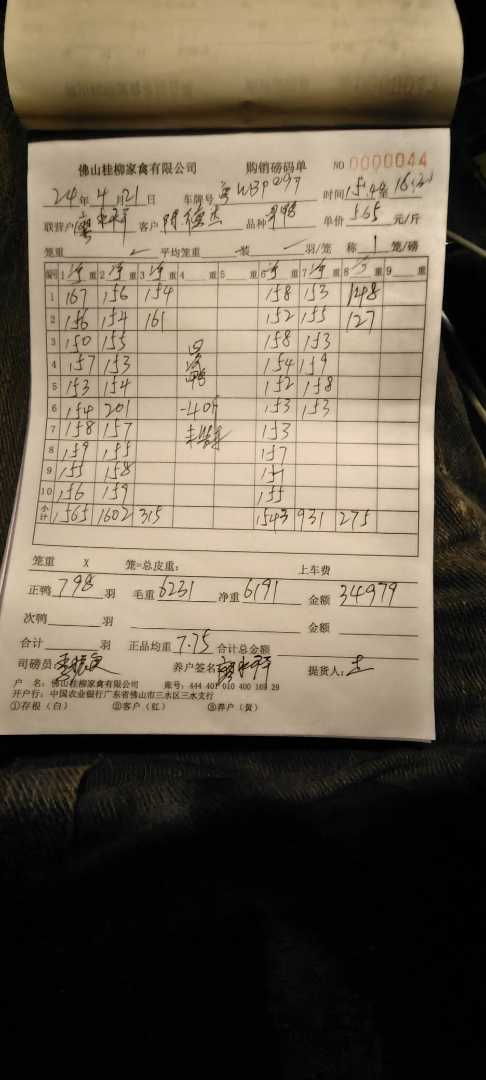 佛山桂柳家禽有限公司 购销磅码单 NO 0000044
24 年 4 月 21 日 车牌号 粤WBP097 时间 15.48 16:20
联营户 廖 客户 陈德杰 品种 单价 5.65 元/斤
笼重 平均笼重 装 羽/笼 称 1 笼/磅
编号 1 净 重 2 净 重 3 净 重 4 重 5 重 6 净 重 7 净 重 8 净 重 9 重
1 167 156 154 158 153 148
2 156 154 161 152 155 127
3 150 155 158 153
4 157 153 154 159
5 153 154 152 158
6 154 201 -40斤 153 153
7 158 157 153
8 159 155 157
9 155 158 151
10 156 159 155
小计 1565 1602 315 1543 931 275
笼重 X 笼=总皮重: 上车费
正鸭 798 羽 毛重 6231 净重 6191 金额 34979
次鸭 羽 金额
合计 羽 正品均重 7.75 合计总金额
司磅员: 养户签名 提货人:
户 名: 佛山桂柳家禽有限公司 账号: 444 401 010 400 169 29
开户行: 中国农业银行广东省佛山市三水区三水支行
①存根(白) ②客户(红) ③养户(黄)